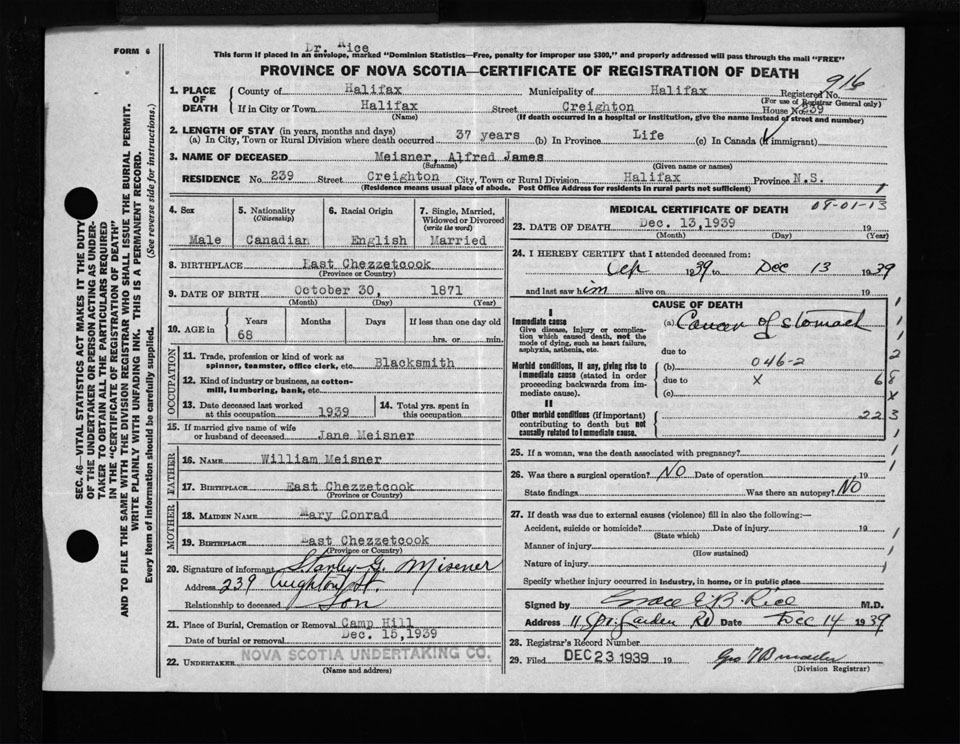 FORM 6
Dr. Rice
This form if placed in an envelope, marked "Dominion Statistics—Free, penalty for improper use $300," and properly addressed will pass through the mail "FREE"
PROVINCE OF NOVA SCOTIA—CERTIFICATE OF REGISTRATION OF DEATH
916
1. PLACE OF DEATH
County of Halifax Municipality of Halifax Registered No.
(For use of Registrar General only)
If in City or Town Halifax Street Creighton House No. 239
(Name) (If death occurred in a hospital or institution, give the name instead of street and number)
2. LENGTH OF STAY (in years, months and days)
(a) In City, Town or Rural Division where death occurred 37 years (b) In Province Life (c) In Canada (if immigrant)
3. NAME OF DECEASED Meisner, Alfred James
(Surname) (Given name or names)
RESIDENCE No. 239 Street Creighton City, Town or Rural Division Halifax Province N.S.
(Residence means usual place of abode. Post Office Address for residents in rural parts not sufficient)
4. Sex Male
5. Nationality (Citizenship) Canadian
6. Racial Origin English
7. Single, Married, Widowed or Divorced (write the word) Married
8. BIRTHPLACE East Chezzetcook
(Province or Country)
9. DATE OF BIRTH October 30, 1871
(Month) (Day) (Year)
10. AGE in Years Months Days If less than one day old
68 hrs. or min.
OCCUPATION
11. Trade, profession or kind of work as spinner, teamster, office clerk, etc. Blacksmith
12. Kind of industry or business, as cotton-mill, lumbering, bank, etc.
13. Date deceased last worked at this occupation 1939
14. Total yrs. spent in this occupation
15. If married give name of wife or husband of deceased Jane Meisner
FATHER
16. NAME William Meisner
17. BIRTHPLACE East Chezzetcook
(Province or Country)
MOTHER
18. MAIDEN NAME Mary Conrad
19. BIRTHPLACE East Chezzetcook
(Province or Country)
20. Signature of informant Stanley G. Misener
Address 239 Creighton St.
Relationship to deceased Son
21. Place of Burial, Cremation or Removal Camp Hill
Date of burial or removal Dec. 15, 1939
22. UNDERTAKER NOVA SCOTIA UNDERTAKING CO.
(Name and address)
MEDICAL CERTIFICATE OF DEATH
09-01-13
23. DATE OF DEATH Dec. 13, 1939 19
(Month) (Day) (Year)
24. I HEREBY CERTIFY that I attended deceased from:
Sep 1939 to Dec 13 1939
and last saw him alive on 19
CAUSE OF DEATH
I
Immediate cause (a) Cancer of stomach
Give disease, injury or complication which caused death, not the mode of dying, such as heart failure, asphyxia, asthenia, etc.
due to
Morbid conditions, if any, giving rise to immediate cause (stated in order proceeding backwards from immediate cause).
(b) 046-2
due to x 68
(c) x
II
Other morbid conditions (if important) contributing to death but not causally related to immediate cause.
223
25. If a woman, was the death associated with pregnancy?
26. Was there a surgical operation? NO Date of operation 19
State findings Was there an autopsy? NO
27. If death was due to external causes (violence) fill in also the following:—
Accident, suicide or homicide? Date of injury 19
(State which)
Manner of injury
(How sustained)
Nature of injury
Specify whether injury occurred in industry, in home, or in public place
Signed by Grace E. B. Rice M.D.
Address 11 Spr. Garden Rd Date Dec 14 1939
28. Registrar's Record Number
29. Filed DEC 23 1939 19
(Division Registrar)
SEC. 46—VITAL STATISTICS ACT MAKES IT THE DUTY
OF THE UNDERTAKER OR PERSON ACTING AS UNDER-
TAKER TO OBTAIN ALL THE PARTICULARS REQUIRED
IN THE "CERTIFICATE OF REGISTRATION OF DEATH"
AND TO FILE THE SAME WITH THE DIVISION REGISTRAR WHO SHALL ISSUE THE BURIAL PERMIT.
WRITE PLAINLY WITH UNFADING INK. THIS IS A PERMANENT RECORD.
Every item of information should be carefully supplied. (See reverse side for instructions.)